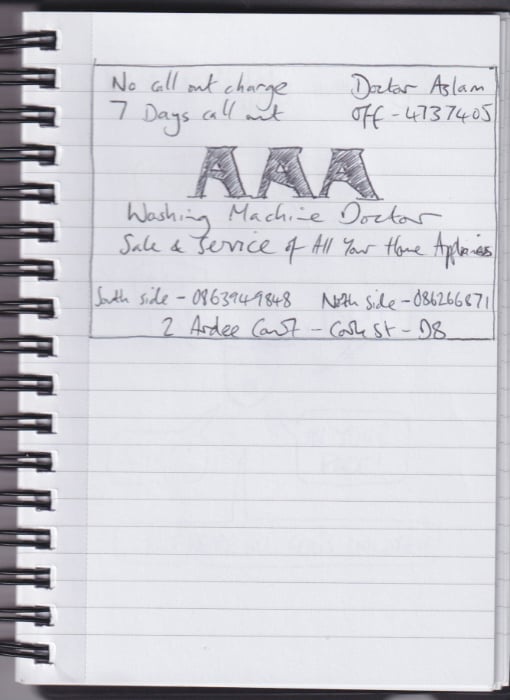 No call out charge Doctor Aslam
7 Days call out off - 4737405
AAA
Washing Machine Doctor
Sale & Service of All Your Home Appliances
South side - 0863949848 North side - 086266871
2 Ardee Court - Cork St - D8